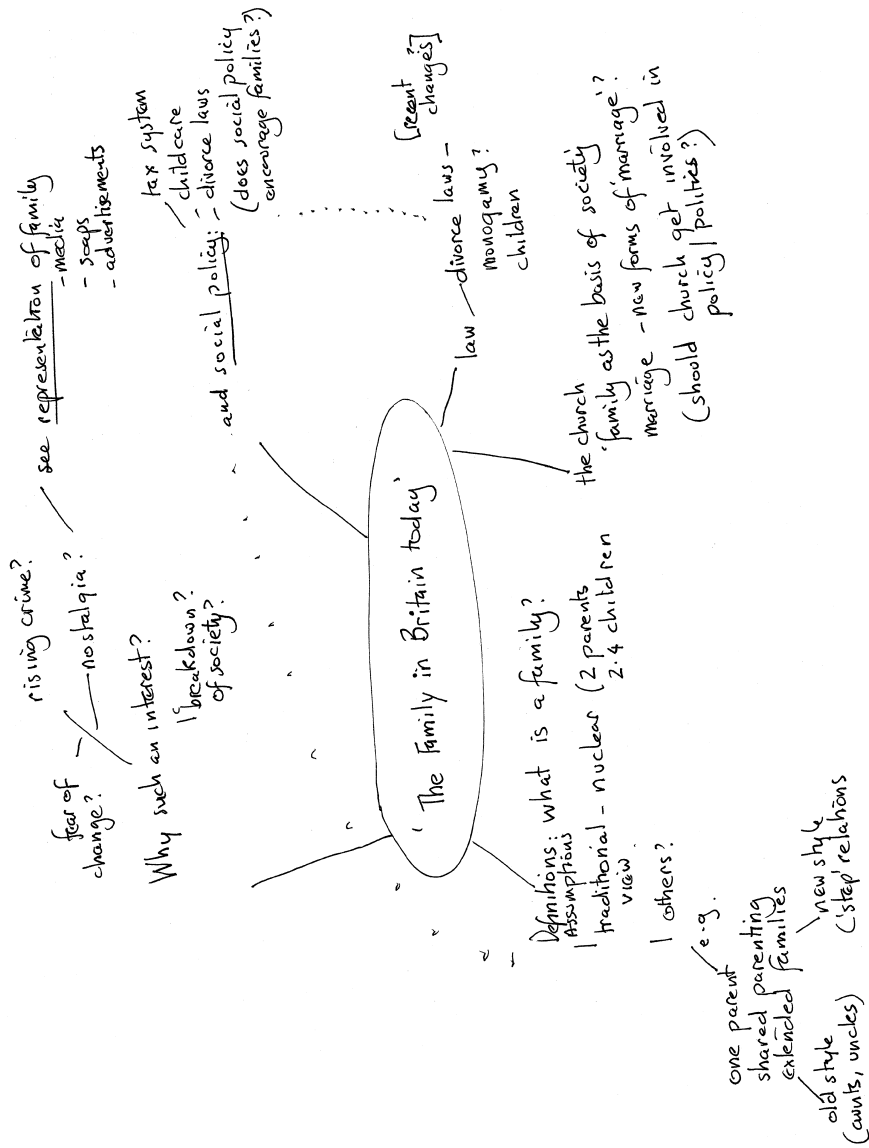 'The Family in Britain today'
Why such an interest?
fear of
change?
rising crime?
nostalgia?
breakdown?
of society?
see representation of family
- media
- soaps
- advertisements
and social policy:
tax system
childcare
- divorce laws
(does social policy
encourage families?)
law
divorce laws -
monogamy?
children
[recent
changes?]
the church
'family as the basis of society
marriage - new forms of 'marriage'?
(should church get involved in
policy / politics?)
Definitions: what is a family?
Assumptions
traditional - nuclear (2 parents
view
2.4 children
others?
e.g.
one parent
shared parenting
extended families
old style
(aunts, uncles)
new style
('step' relations